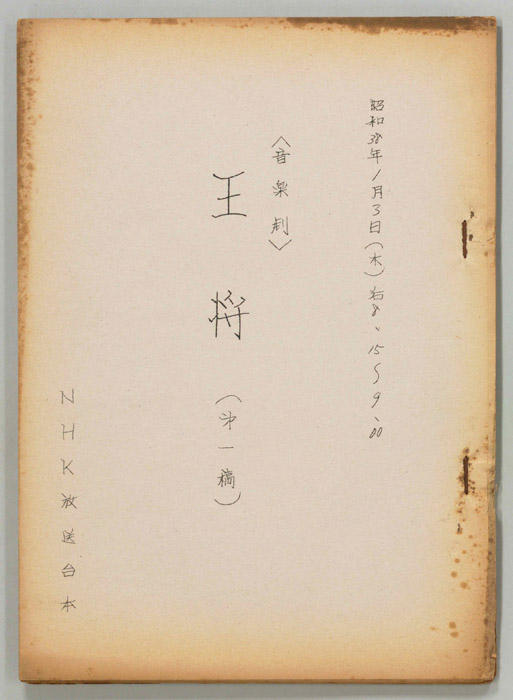 昭和38年1月3日(木)后8、15〜9、00
〈音楽劇〉
王将
(才一稿)
NHK放送台本